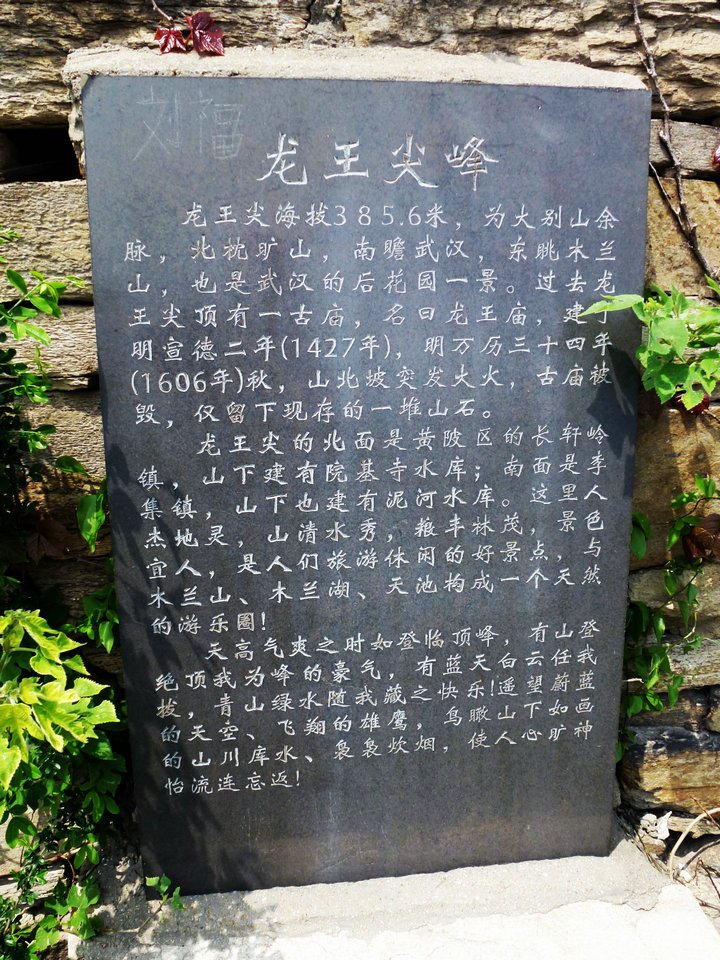 刘福
龙王尖峰
龙王尖海拔385.6米，为大别山余
脉，北枕旷山，南瞻武汉，东眺木兰
山，也是武汉的后花园一景。过去龙
王尖顶有一古庙，名曰龙王庙，建于
明宣德二年(1427年)，明万历三十四年
(1606年)秋，山北坡突发大火，古庙被
毁，仅留下现存的一堆山石。
龙王尖的北面是黄陂区的长轩岭
镇，山下建有院基寺水库；南面是李
集镇，山下也建有泥河水库。这里人
杰地灵，山清水秀，粮丰林茂，景色
宜人，是人们旅游休闲的好景点，与
木兰山、木兰湖、天池构成一个天然
的游乐圈！
天高气爽之时如登临顶峰，有山登
绝顶我为峰的豪气，有蓝天白云任我
拨，青山绿水随我藏之快乐！遥望蔚蓝
的天空、飞翔的雄鹰，鸟瞰山下如画
的山川库水、袅袅炊烟，使人心旷神
怡流连忘返！